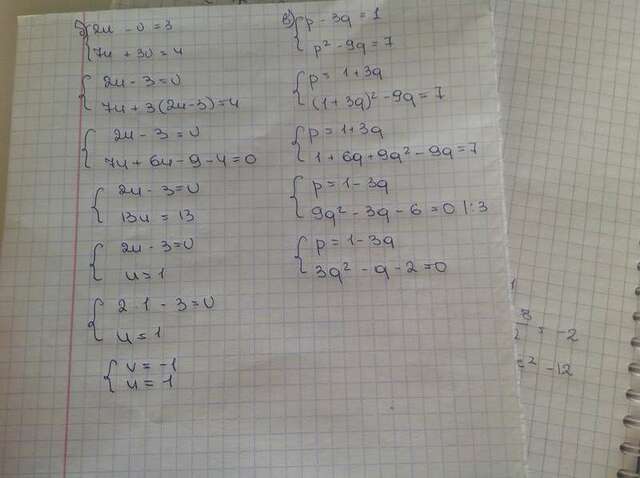 б) { 2u - v = 3
7u + 3v = 4
{ 2u - 3 = v
7u + 3(2u-3) = 4
{ 2u - 3 = v
7u + 6u - 9 - 4 = 0
{ 2u - 3 = v
13u = 13
{ 2u - 3 = v
u = 1
{ 2 · 1 - 3 = v
u = 1
{ v = -1
u = 1
в) { p - 3q = 1
p² - 9q = 7
{ p = 1 + 3q
(1 + 3q)² - 9q = 7
{ p = 1 + 3q
1 + 6q + 9q² - 9q = 7
{ p = 1 - 3q
9q² - 3q - 6 = 0 | : 3
{ p = 1 - 3q
3q² - q - 2 = 0
= -2
² - 12